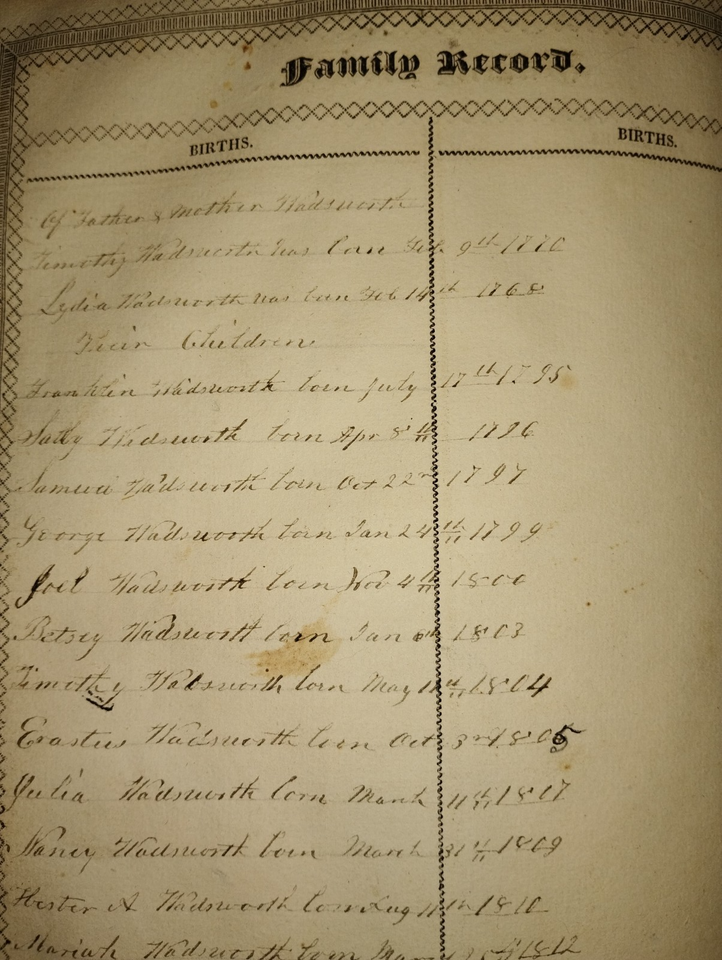 Family Record.
BIRTHS. BIRTHS.
Of Father & Mother Wadsworth
Timothy Wadsworth was born Feb. 9th 1770
Lydia Wadsworth was born Feb 14th 1768
Their Children
Franklin Wadsworth born July 17th 1795
Sally Wadsworth born Apr 8th 1796
Samuel Wadsworth born Oct 22nd 1797
George Wadsworth born Jan 24th 1799
Joel Wadsworth born Nov 4th 1800
Betsey Wadsworth born Jan 1803
Timothy Wadsworth born May 1804
Erastus Wadsworth born Oct 3rd 1805
Julia Wadsworth born March 11th 1807
Nancy Wadsworth born March 31th 1809
Hester A Wadsworth born Aug 11th 1810
Mariah Wadsworth born 1812